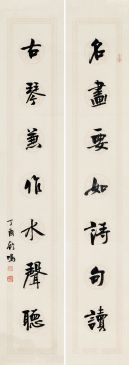 名畫要如詩句讀
古琴兼作水聲聽
丁酉